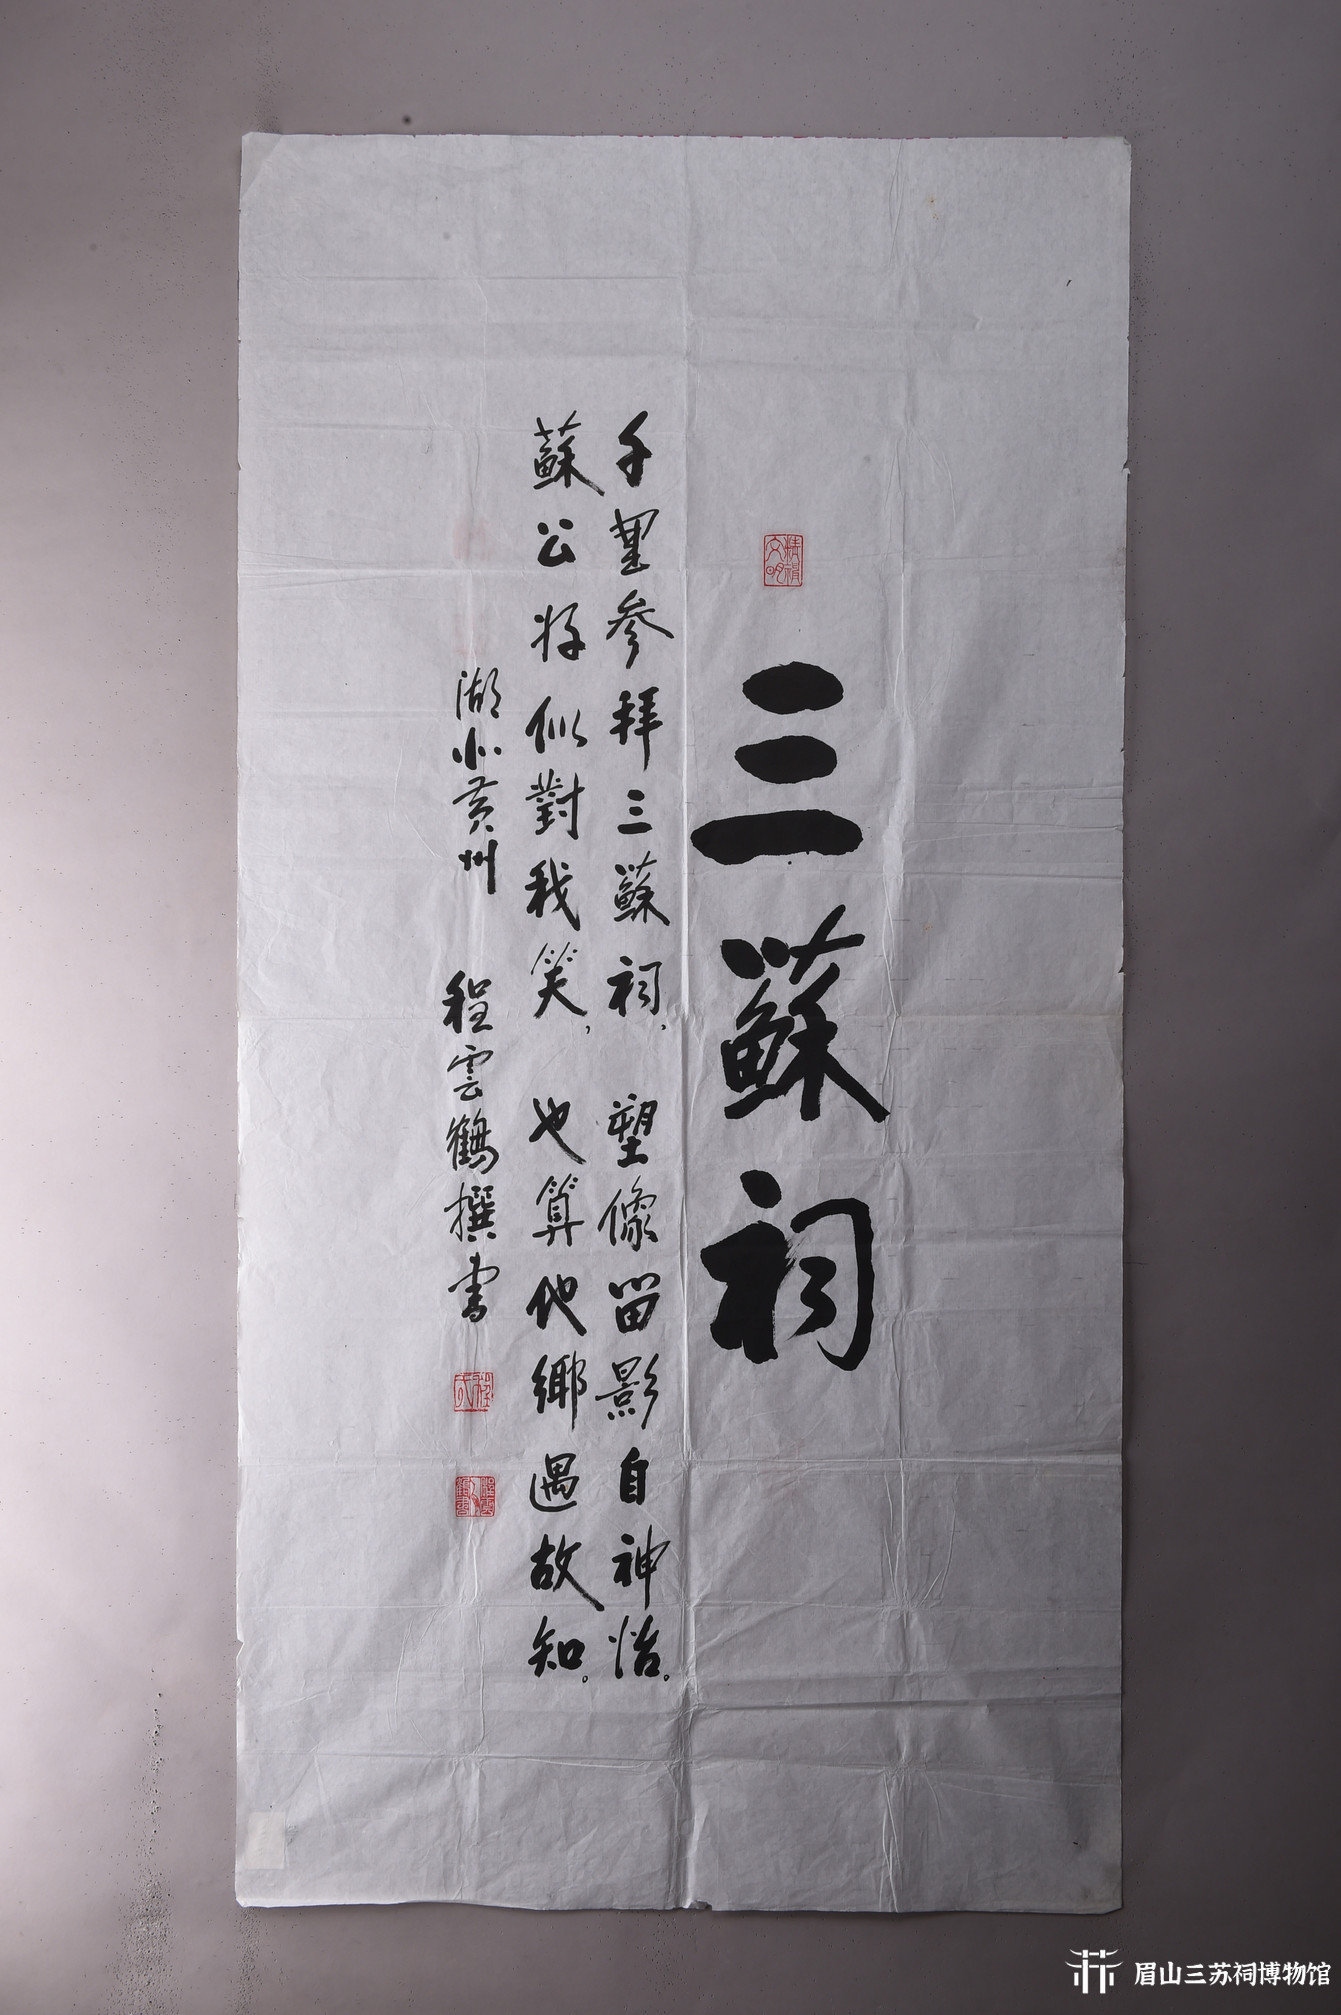 精神文明
三蘇祠
千里參拜三蘇祠，塑像留影自神怡。
蘇公好似對我笑，也算他鄉遇故知。
湖北黃州 程雲鶴撰書
眉山三苏祠博物馆